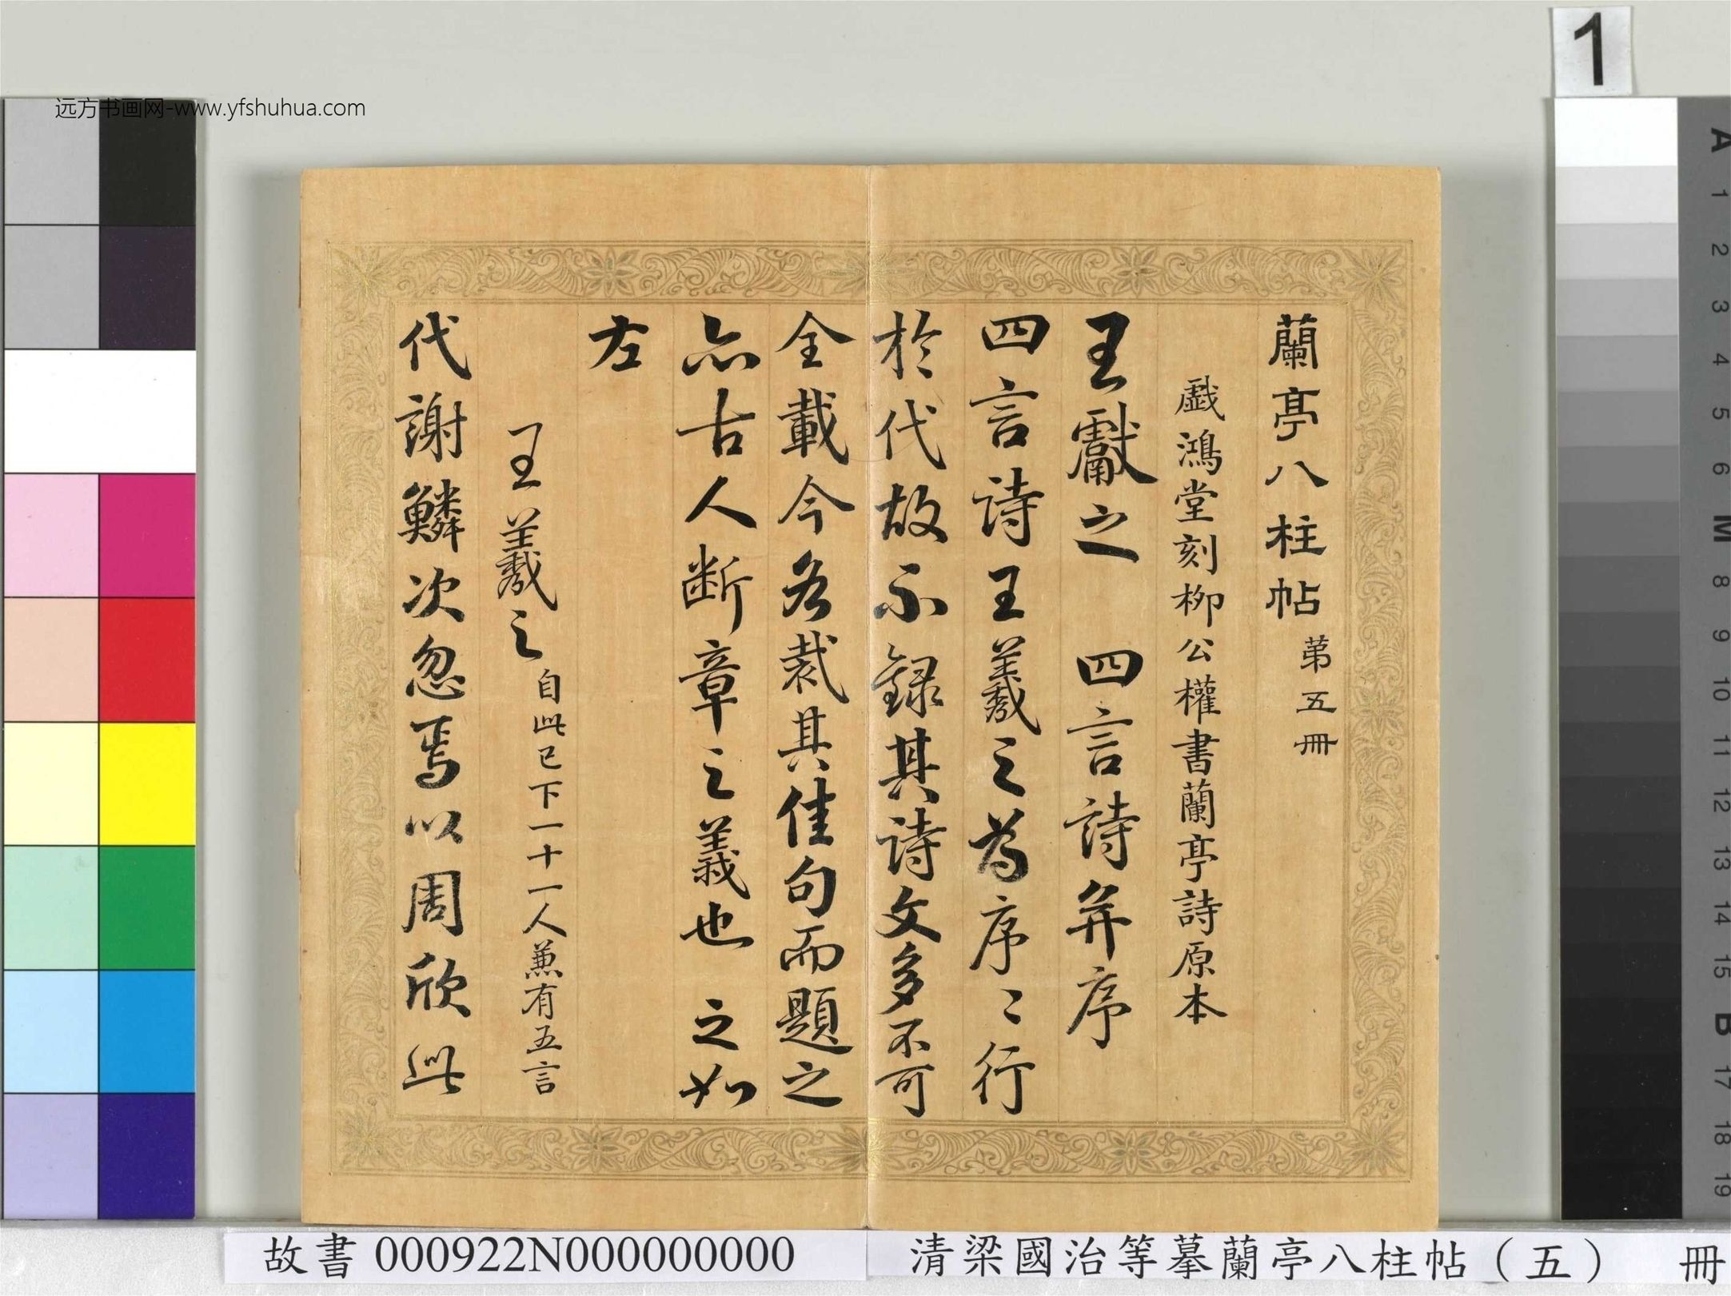 远方书画网-www.yfshuhua.com
1
蘭亭八柱帖 第五冊
戲鴻堂刻柳公權書蘭亭詩原本
王獻之 四言詩并序
四言詩王羲之為序〻行
於代故不錄其詩文多不可
全載今各裁其佳句而題之
亦古人斷章之義也 之如
左
王羲之 自此已下一十一人兼有五言
代謝鱗次忽焉以周欣此
A
1
2
3
4
5
6
M
8
9
10
11
12
13
14
15
B
17
18
19
故書 000922N000000000
清梁國治等摹蘭亭八柱帖（五） 冊